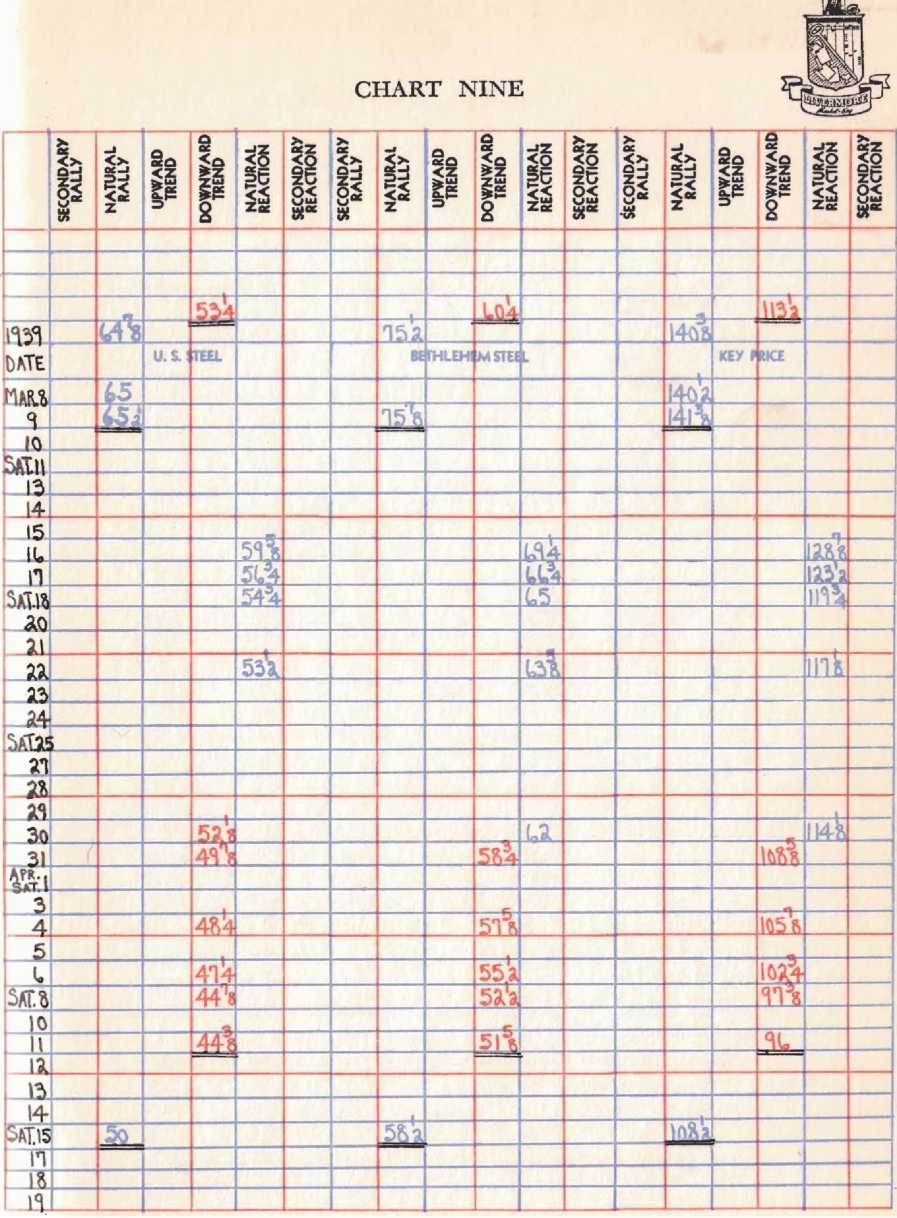 LIVERMORE
Market Key
CHART NINE
SECONDARY RALLY NATURAL RALLY UPWARD TREND DOWNWARD TREND NATURAL REACTION SECONDARY REACTION SECONDARY RALLY NATURAL RALLY UPWARD TREND DOWNWARD TREND NATURAL REACTION SECONDARY REACTION SECONDARY RALLY NATURAL RALLY UPWARD TREND DOWNWARD TREND NATURAL REACTION SECONDARY REACTION
53 1/4 60 1/4 113 1/2
1939 64 7/8 75 1/2 140 3/8
DATE U. S. STEEL BETHLEHEM STEEL KEY PRICE
MAR.8 65 140 1/2
9 65 1/2 75 7/8 141 3/8
10
SAT.11
13
14
15
16 59 5/8 69 1/4 128 7/8
17 56 3/4 66 3/4 123 1/2
SAT.18 54 3/4 65 119 3/4
20
21
22 53 1/2 63 5/8 117 1/8
23
24
SAT.25
27
28
29
30 52 1/8 62 114 1/8
31 49 7/8 58 3/4 108 5/8
APR. SAT.1
3
4 48 1/4 57 5/8 105 7/8
5
6 47 1/4 55 1/2 102 3/4
SAT.8 44 7/8 52 1/2 97 3/8
10
11 44 3/8 51 5/8 96
12
13
14
SAT.15 50 58 1/2 108 1/2
17
18
19